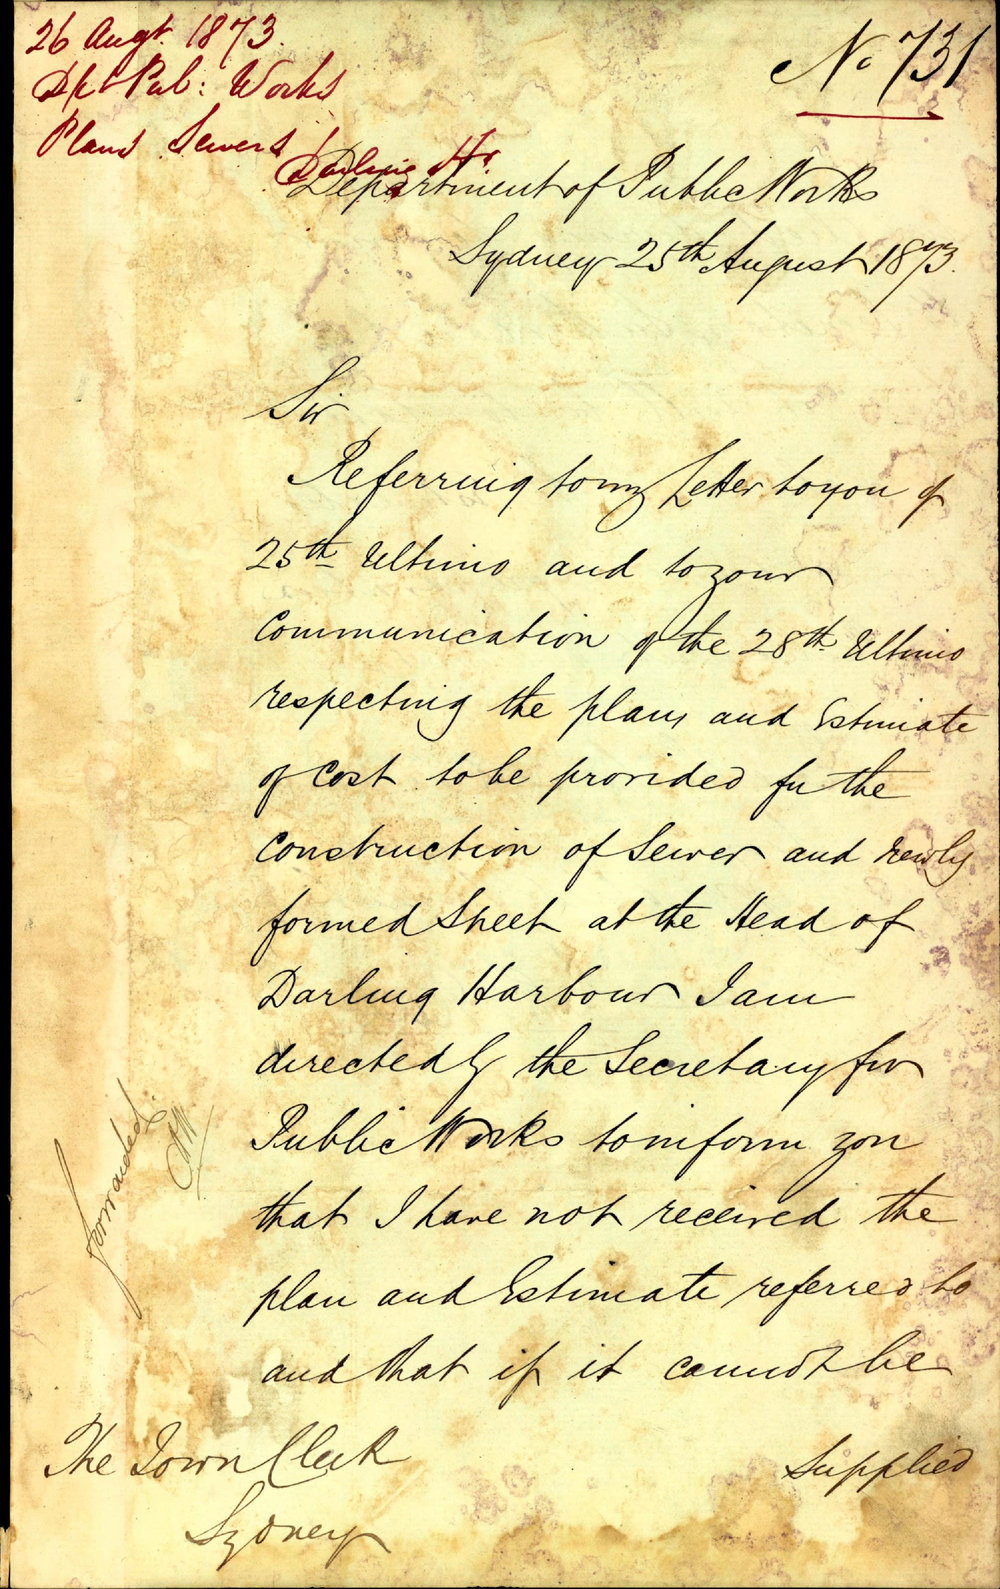 26 Augt. 1873.
Dpt Pub: Works
Plans Sewers
Darling Hr
No 731
Department of Public Works
Sydney 25th August 1873.
Sir
Referring to my Letter to you of
25th Ultimo and to your
Communication of the 28th Ultimo
respecting the plans and Estimate
of Cost to be provided for the
Construction of Sewer and newly
formed Street at the Head of
Darling Harbour I am
directed by the Secretary for
Public Works to inform you
that I have not received the
plan and Estimate referred to
and that if it cannot be
Supplied
forwarded.
The Town Clerk
Sydney